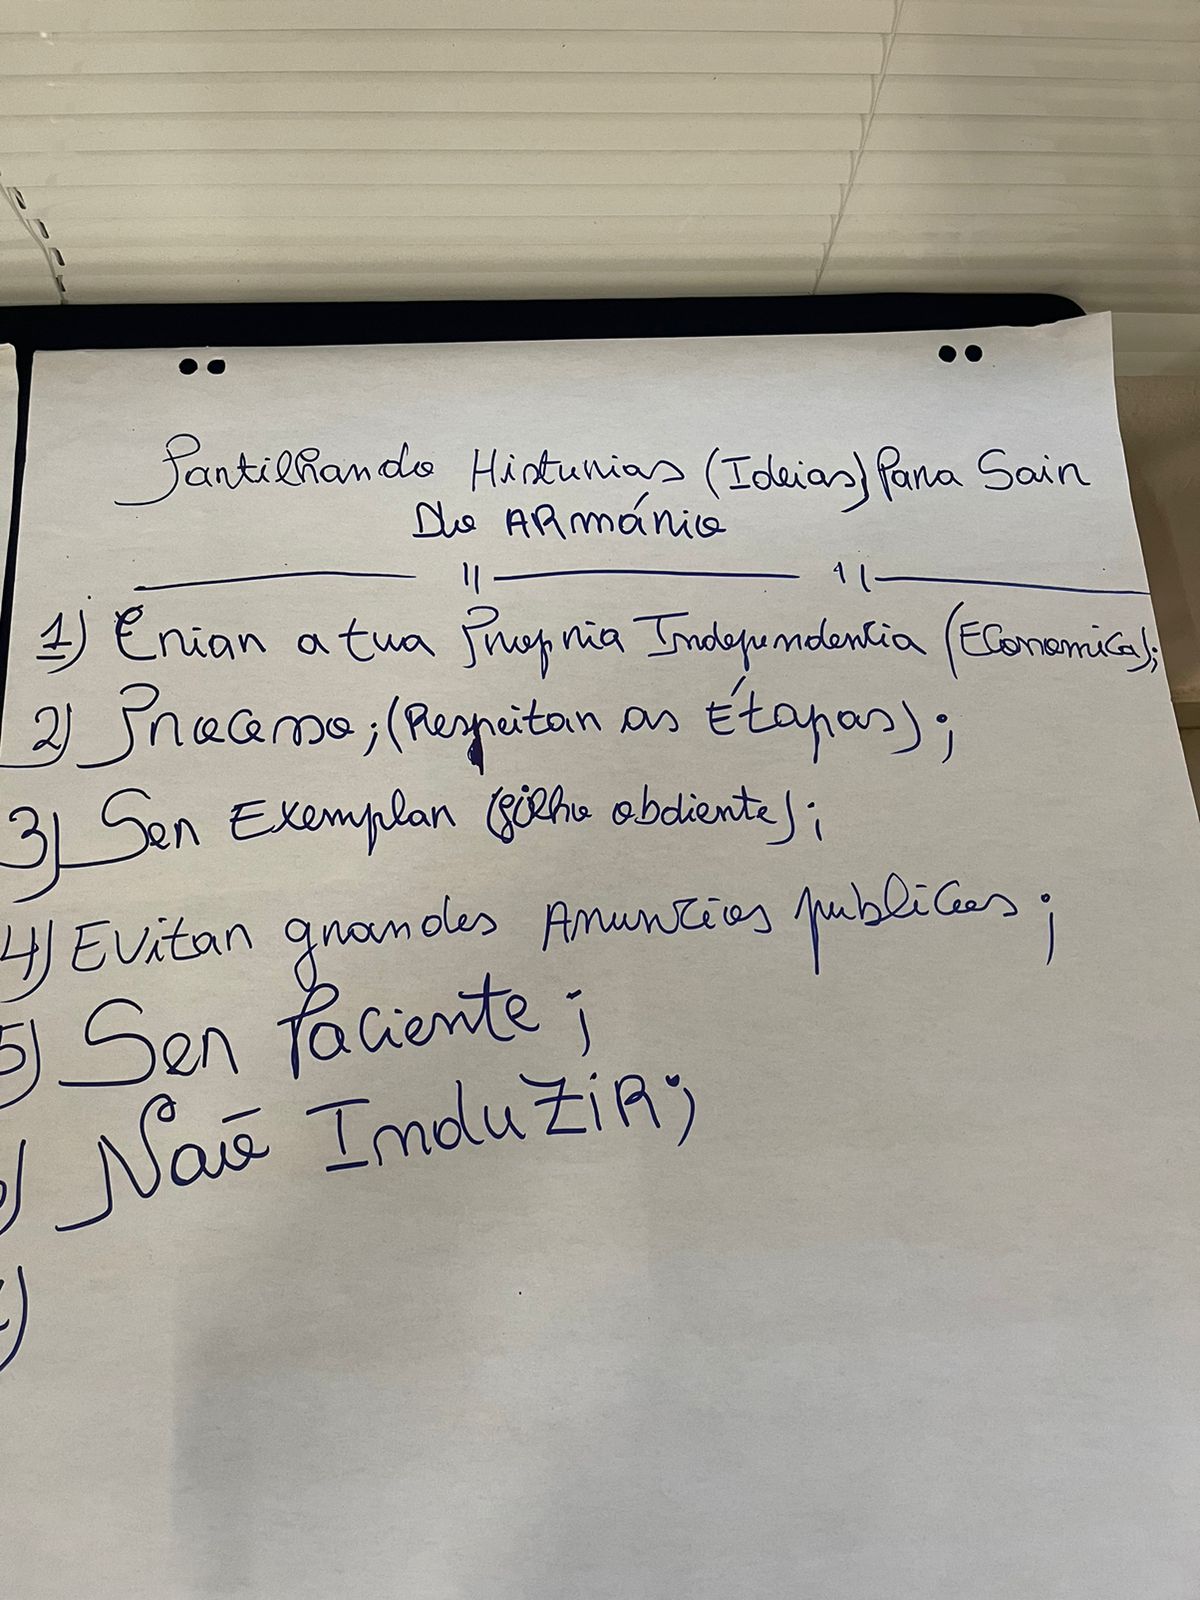 Partilhando Histurias (Ideias) Para Sair
Do ARmário
1) Criar a tua Propria Independencia (Economica);
2) Processo; (Respeitar as Étapas);
3) Ser Exemplar (filho obdiente);
4) EVitar grandes Anuncios publicos;
5) Ser Paciente;
Não InduZiR;